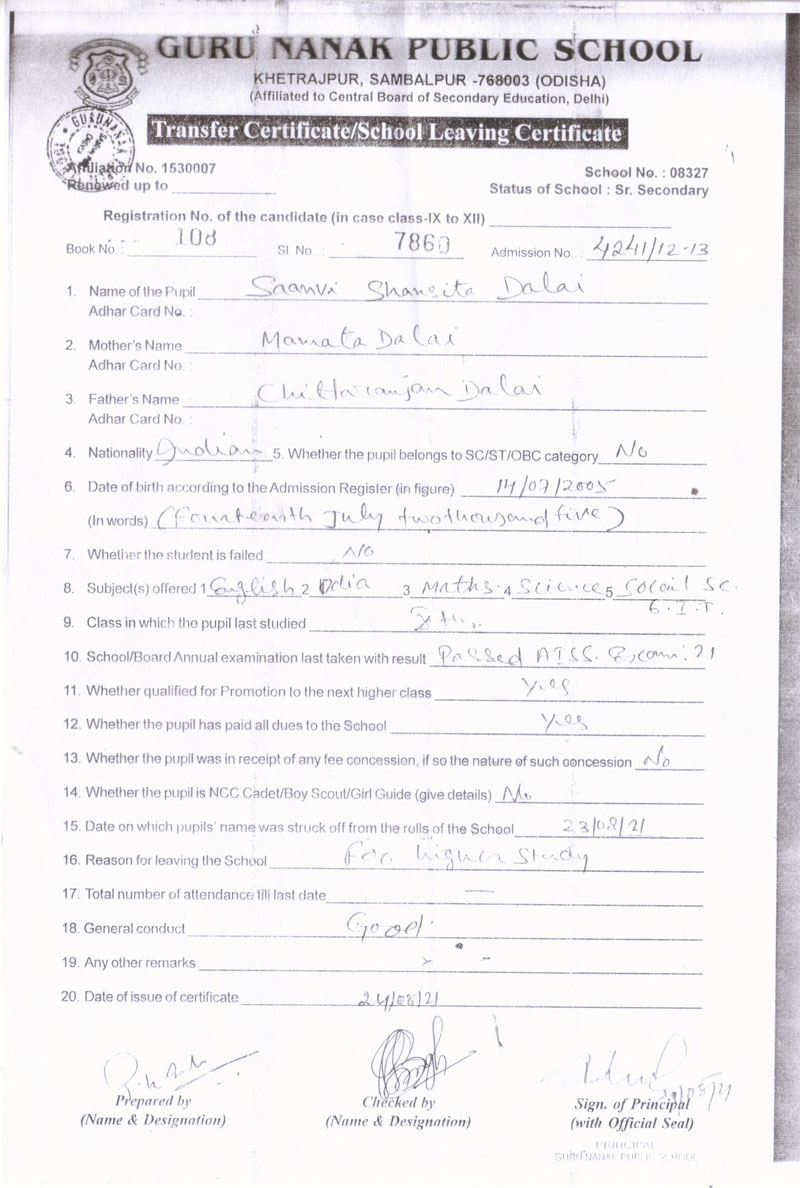 GURU NANAK PUBLIC SCHOOL
KHETRAJPUR, SAMBALPUR -768003 (ODISHA)
(Affiliated to Central Board of Secondary Education, Delhi)
Transfer Certificate/School Leaving Certificate
Affiliation No. 1530007
School No. : 08327
Renewed up to
Status of School : Sr. Secondary
Registration No. of the candidate (in case class-IX to XII)
Book No. : 108 Sl. No. : 7860 Admission No. : 4241/12-13
1. Name of the Pupil Saanvi Dalai
Adhar Card No. :
2. Mother's Name Mamata Dalai
Adhar Card No. :
3. Father's Name Chittaranjan Dalai
Adhar Card No. :
4. Nationality Indian 5. Whether the pupil belongs to SC/ST/OBC category No
6. Date of birth according to the Admission Register (in figure) 14/07/2005
(In words) (Fourteenth July twothousand five)
7. Whether the student is failed No
8. Subject(s) offered 1 English 2 Odia 3 Maths 4 Science 5 Social Sc.
6. I.T.
9. Class in which the pupil last studied Xth.
10. School/Board Annual examination last taken with result Passed AISS. Exam. 21
11. Whether qualified for Promotion to the next higher class Yes
12. Whether the pupil has paid all dues to the School Yes
13. Whether the pupil was in receipt of any fee concession, if so the nature of such concession No
14. Whether the pupil is NCC Cadet/Boy Scout/Girl Guide (give details) No
15. Date on which pupils' name was struck off from the rolls of the School 23/08/21
16. Reason for leaving the School For higher study
17. Total number of attendance till last date —
18. General conduct Good
19. Any other remarks
20. Date of issue of certificate 24/08/21
Prepared by
(Name & Designation)
Checked by
(Name & Designation)
Sign. of Principal
(with Official Seal)
PRINCIPAL
GURU NANAK PUBLIC SCHOOL